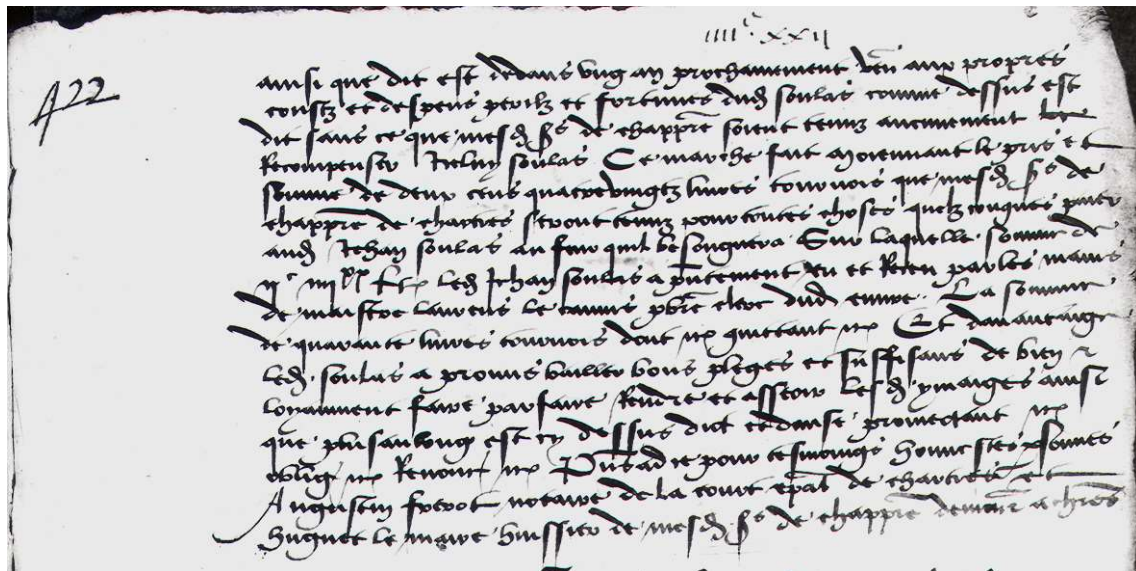 iiiic xxii
422
ainsi que dit est dedans ung an prochainement ven aux propres
coustz et despens perilz et fortunes dud soulas comme dessus est
dit sans ce que mesd srs de chappre soient tenuz aucunement
Recompenser Icelluy soulas Ce marche fait moiennant le pris et
somme de deux cens quatrevingtz livres tournois que mesd srs de
chappre de chartres seront tenuz pour toutes choses quelzconques paier
aud Jehan soulas au feur quil besongnera Sur laquelle somme de
iic iiiixx l t led Jehan soulas a pntement eu et Receu par les mains
de maistre laurens le pbre clerc dud euvre La somme
de quarante livres tournois dont quittant Et davantaige
led soulas a promis bailler bons pleges et suffisans de bien
loyaument faire parfaire Rendre et asseoir lesd ymaiges ainsi
que plus au long est cy dessus dit et divise promectant
oblig Renonc Pns ad ce pour tesmoings honnestes psonnes
Augustin frerot notaire de la court epal de chartres et
huguet le maire huissier de mesd srs de chappre demour a chres